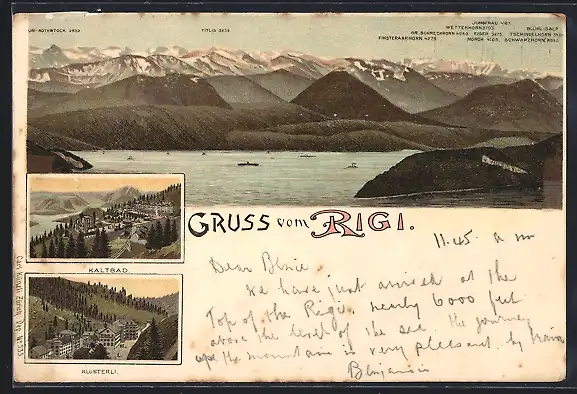 URI-ROTHSTOCK 2932
TITLIS 3239
JUNGFRAU 4167
WETTERHORN 3703
BLÜMLISALP
GR. SCHRECKHORN 4080 EIGER 3975 TSCHINGELHORN
FINSTERAARHORN 4275 MÖNCH 4105 SCHWARZHORN
KALTBAD.
KLÖSTERLI.
Carl Künzli, Zürich, Dep. № 535.
GRUSS vom RIGI.
11.45 a m
Dear
We have just arrived at the
Top of the Rigi nearly 6000 feet
above the level of the sea. The journey
up the mountain is very pleasant by train
Benjamin